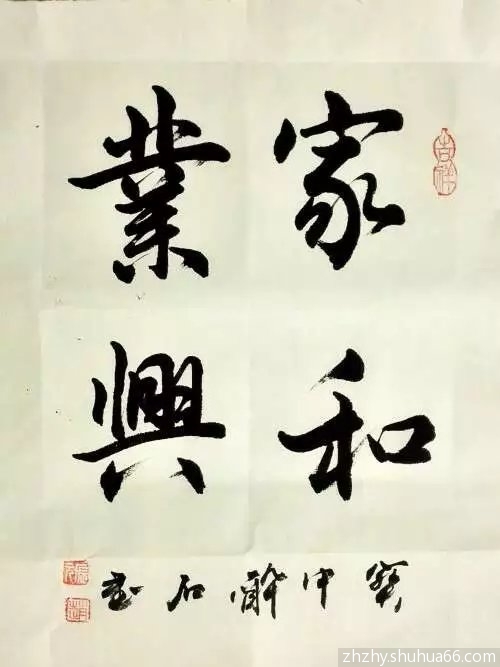 吉祥
家和
業興
中醉石書
zhzhyshuhua66.com